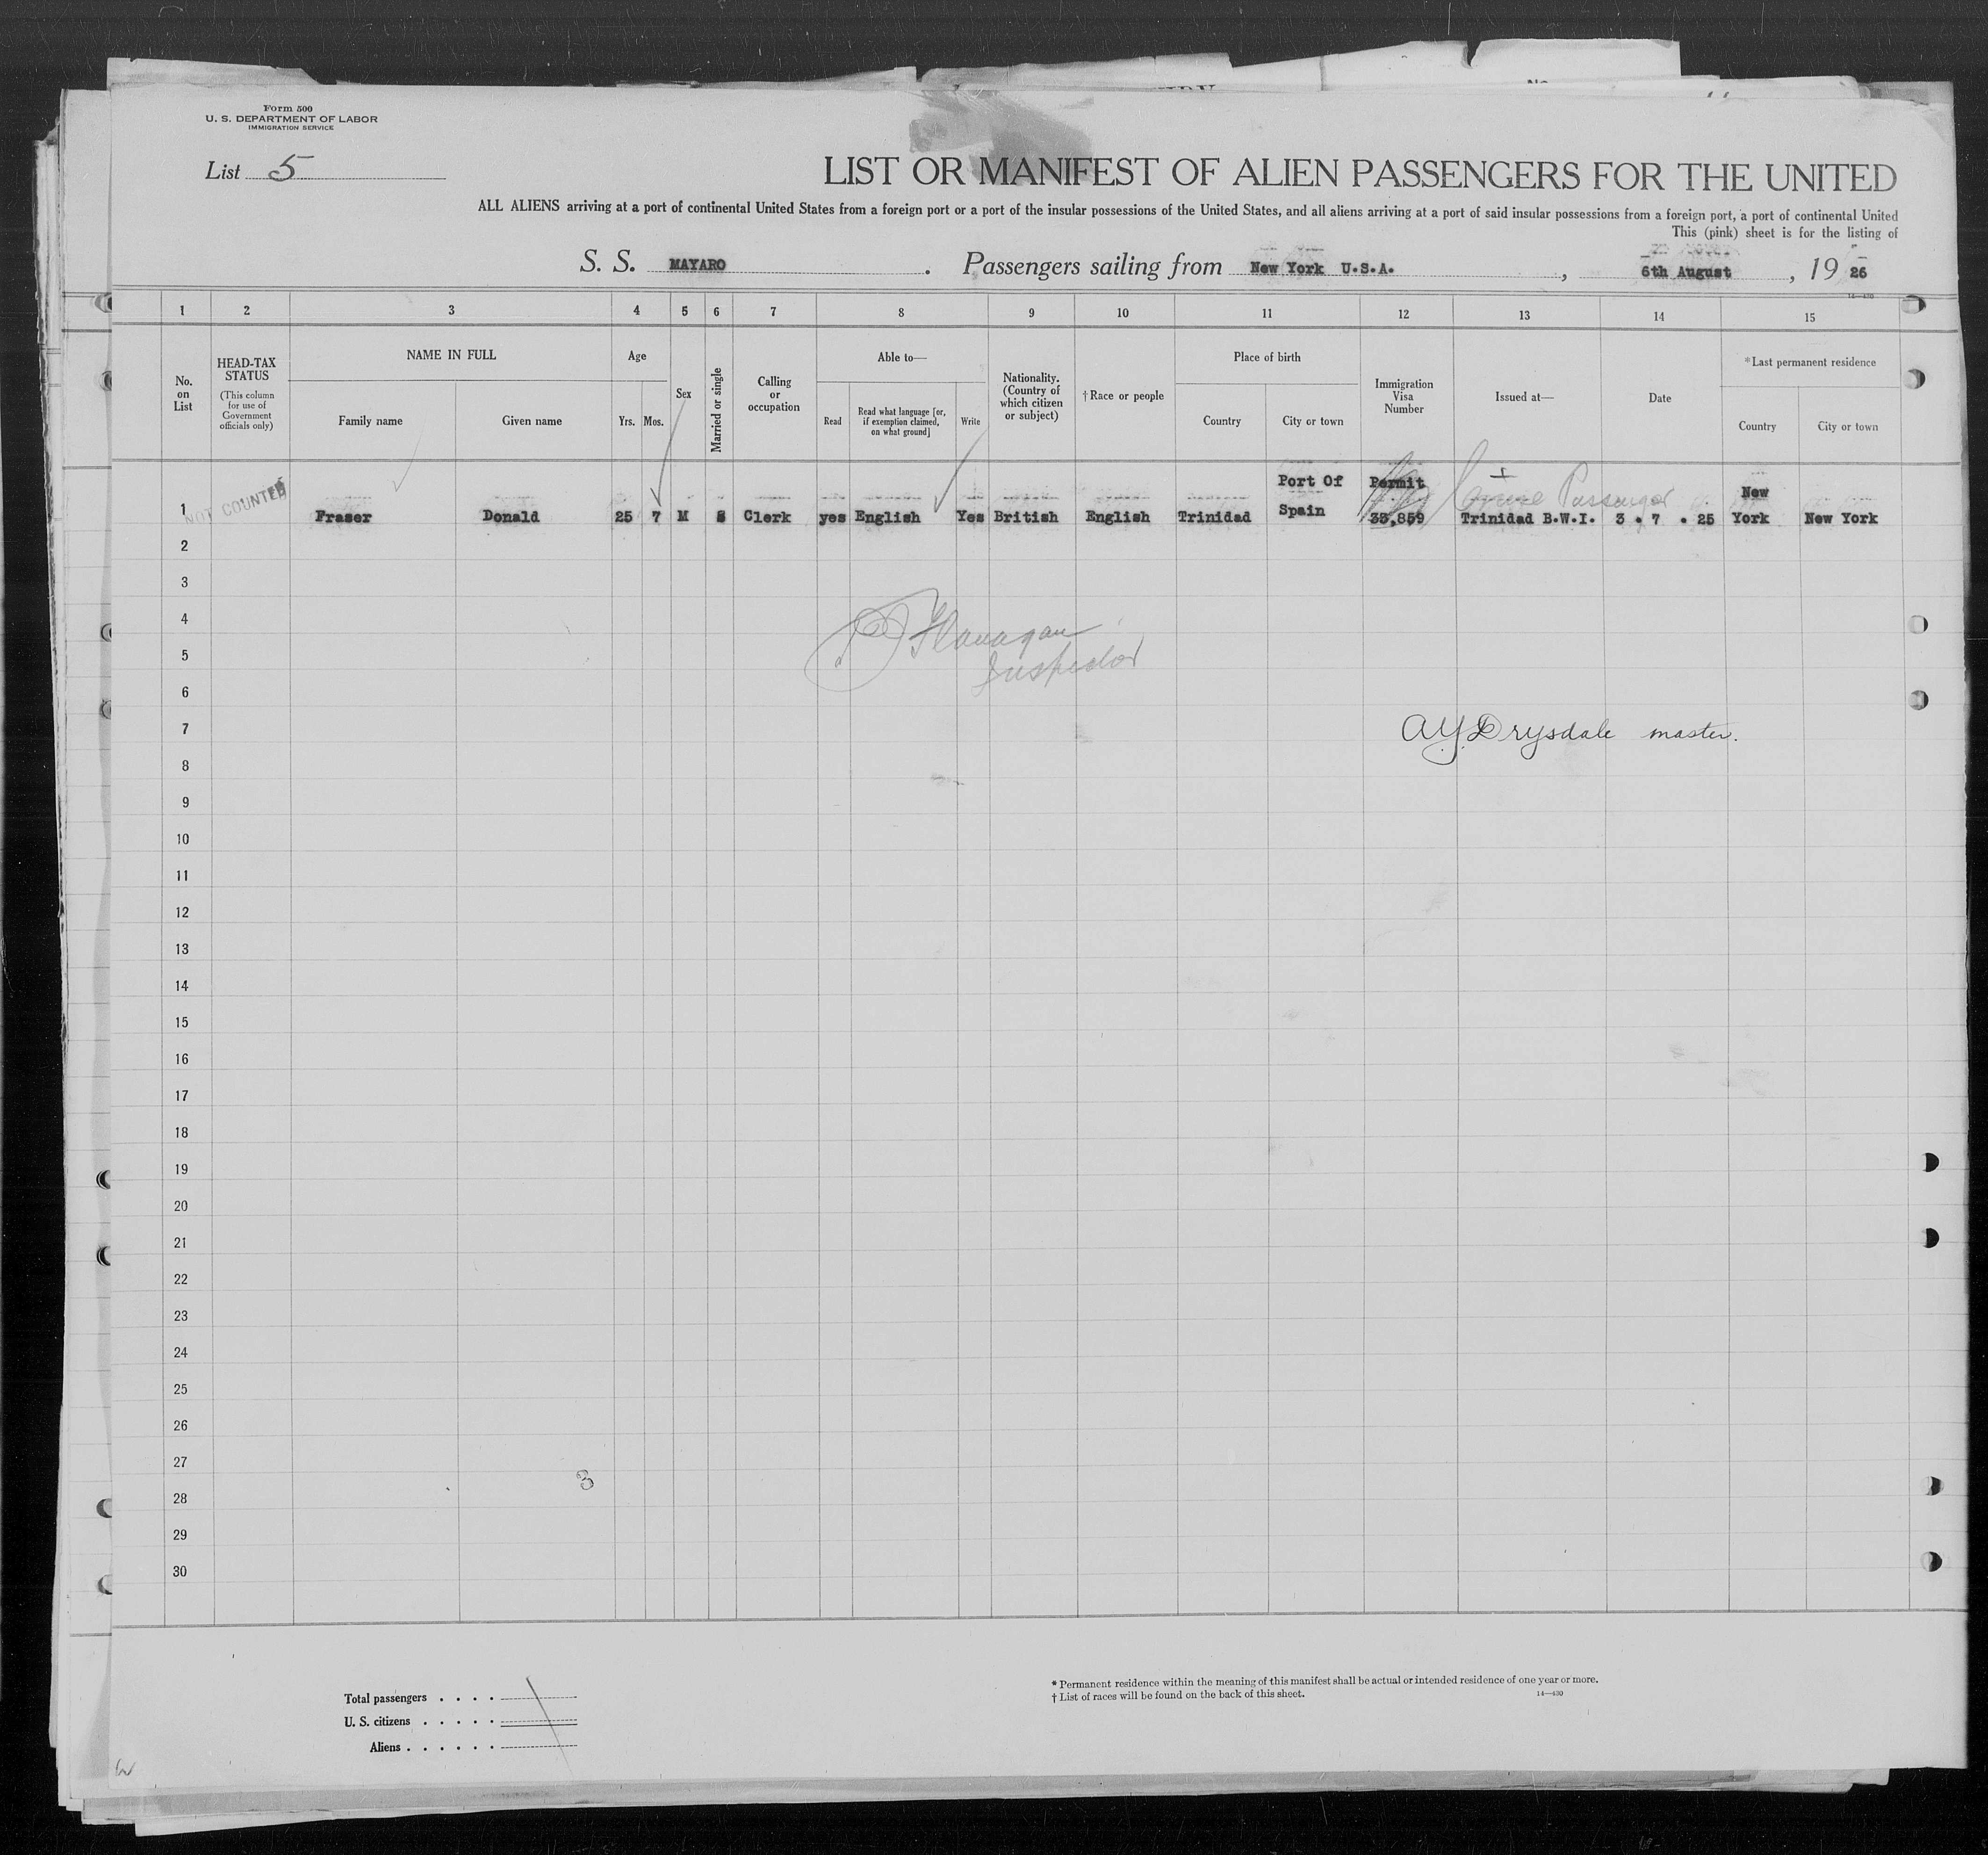 Form 500
U. S. DEPARTMENT OF LABOR
IMMIGRATION SERVICE
List 5
LIST OR MANIFEST OF ALIEN PASSENGERS FOR THE UNITED
ALL ALIENS arriving at a port of continental United States from a foreign port or a port of the insular possessions of the United States, and all aliens arriving at a port of said insular possessions from a foreign port, a port of continental United
This (pink) sheet is for the listing of
S. S. MAYARO. Passengers sailing from New York U.S.A., 6th August, 19 26
14—430
1 2 3 4 5 6 7 8 9 10 11 12 13 14 15
No. on List
HEAD-TAX STATUS
(This column for use of Government officials only)
NAME IN FULL
Family name
Given name
Age
Yrs.
Mos.
Sex
Married or single
Calling or occupation
Able to—
Read
Read what language [or, if exemption claimed, on what ground]
Write
Nationality. (Country of which citizen or subject)
†Race or people
Place of birth
Country
City or town
Immigration Visa Number
Issued at—
Date
*Last permanent residence
Country
City or town
NOT COUNTED
Passenger
1 Fraser Donald 25 7 M S Clerk yes English Yes British English Trinidad Port Of Spain Permit 33,859 Trinidad B.W.I. 3 . 7 . 25 New York New York
2
3
4
Flanagan
5
Inspector
6
7
A Y Drysdale master.
8
9
10
11
12
13
14
15
16
17
18
19
20
21
22
23
24
25
26
27
3
28
29
30
Total passengers . . . .
U. S. citizens . . . . .
Aliens . . . . . .
* Permanent residence within the meaning of this manifest shall be actual or intended residence of one year or more.
† List of races will be found on the back of this sheet.
14—430